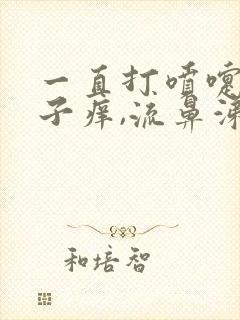 一直打喷嚏
子痒,流鼻涕
和培智